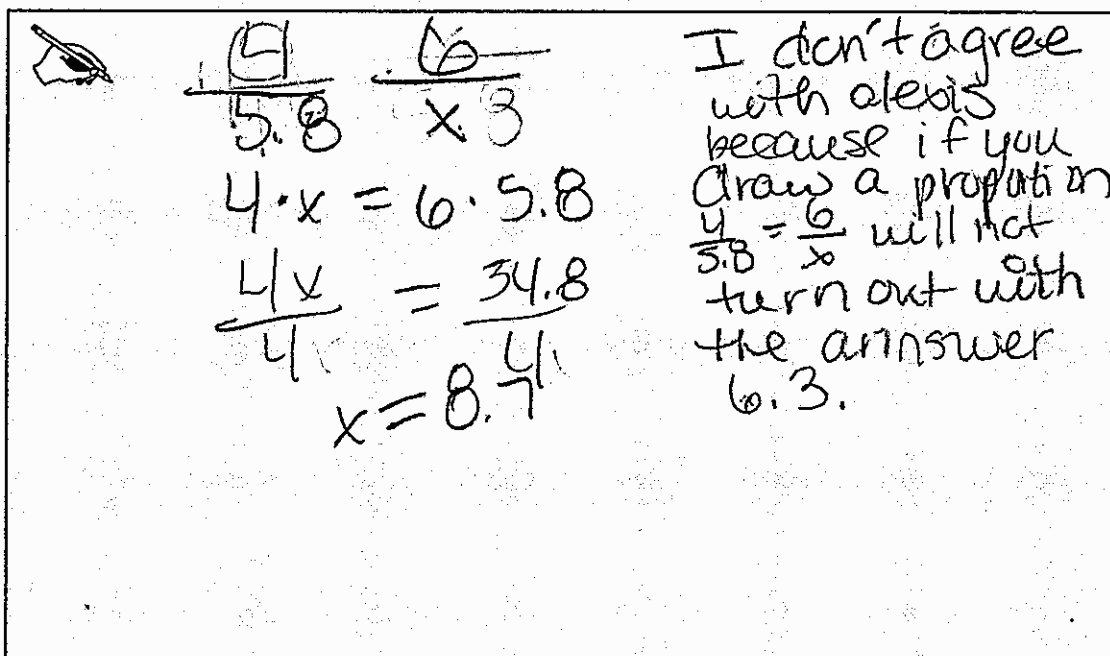 4/5.8 6/x.3
4·x = 6·5.8
4x/4 = 34.8/4
x = 8.7
I don't agree
with alexis
because if you
draw a propation
4/5.8 = 6/x will not
turn out with
the annswer
6.3.